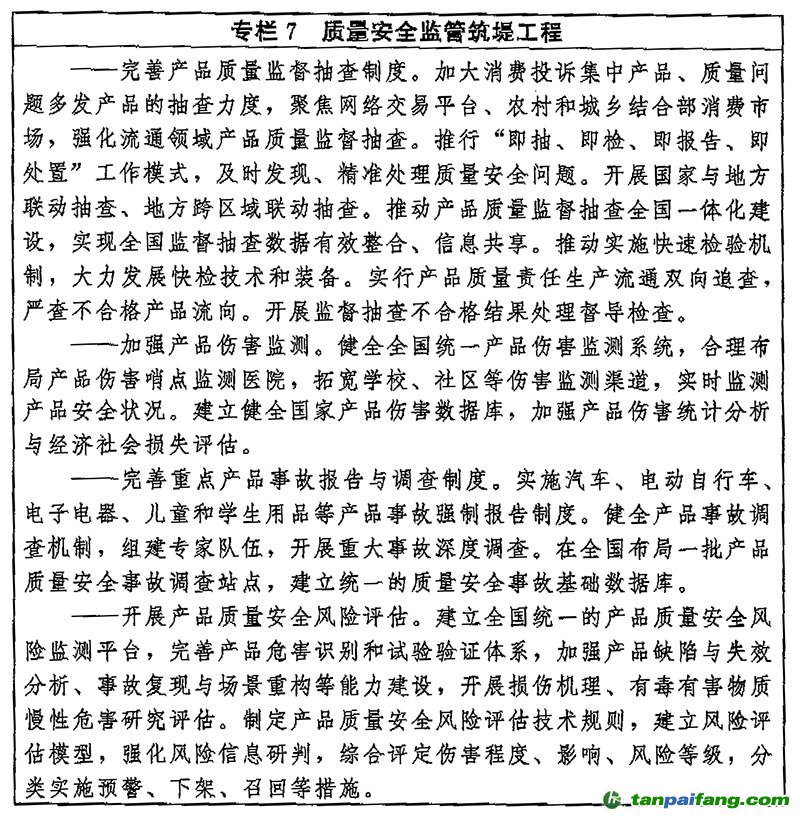 专栏 7 质量安全监管筑堤工程
——完善产品质量监督抽查制度。加大消费投诉集中产品、质量问
题多发产品的抽查力度，聚焦网络交易平台、农村和城乡结合部消费市
场，强化流通领域产品质量监督抽查。推行“即抽、即检、即报告、即
处置”工作模式，及时发现、精准处理质量安全问题。开展国家与地方
联动抽查、地方跨区域联动抽查。推动产品质量监督抽查全国一体化建
设，实现全国监督抽查数据有效整合、信息共享。推动实施快速检验机
制，大力发展快检技术和装备。实行产品质量责任生产流通双向追查，
严查不合格产品流向。开展监督抽查不合格结果处理督导检查。
——加强产品伤害监测。健全全国统一产品伤害监测系统，合理布
局产品伤害哨点监测医院，拓宽学校、社区等伤害监测渠道，实时监测
产品安全状况。建立健全国家产品伤害数据库，加强产品伤害统计分析
与经济社会损失评估。
——完善重点产品事故报告与调查制度。实施汽车、电动自行车、
电子电器、儿童和学生用品等产品事故强制报告制度。健全产品事故调
查机制，组建专家队伍，开展重大事故深度调查。在全国布局一批产品
质量安全事故调查站点，建立统一的质量安全事故基础数据库。
——开展产品质量安全风险评估。建立全国统一的产品质量安全风
险监测平台，完善产品危害识别和试验验证体系，加强产品缺陷与失效
分析、事故复现与场景重构等能力建设，开展损伤机理、有毒有害物质
慢性危害研究评估。制定产品质量安全风险评估技术规则，建立风险评
估模型，强化风险信息研判，综合评定伤害程度、影响、风险等级，分
类实施预警、下架、召回等措施。
tanpaifang.com